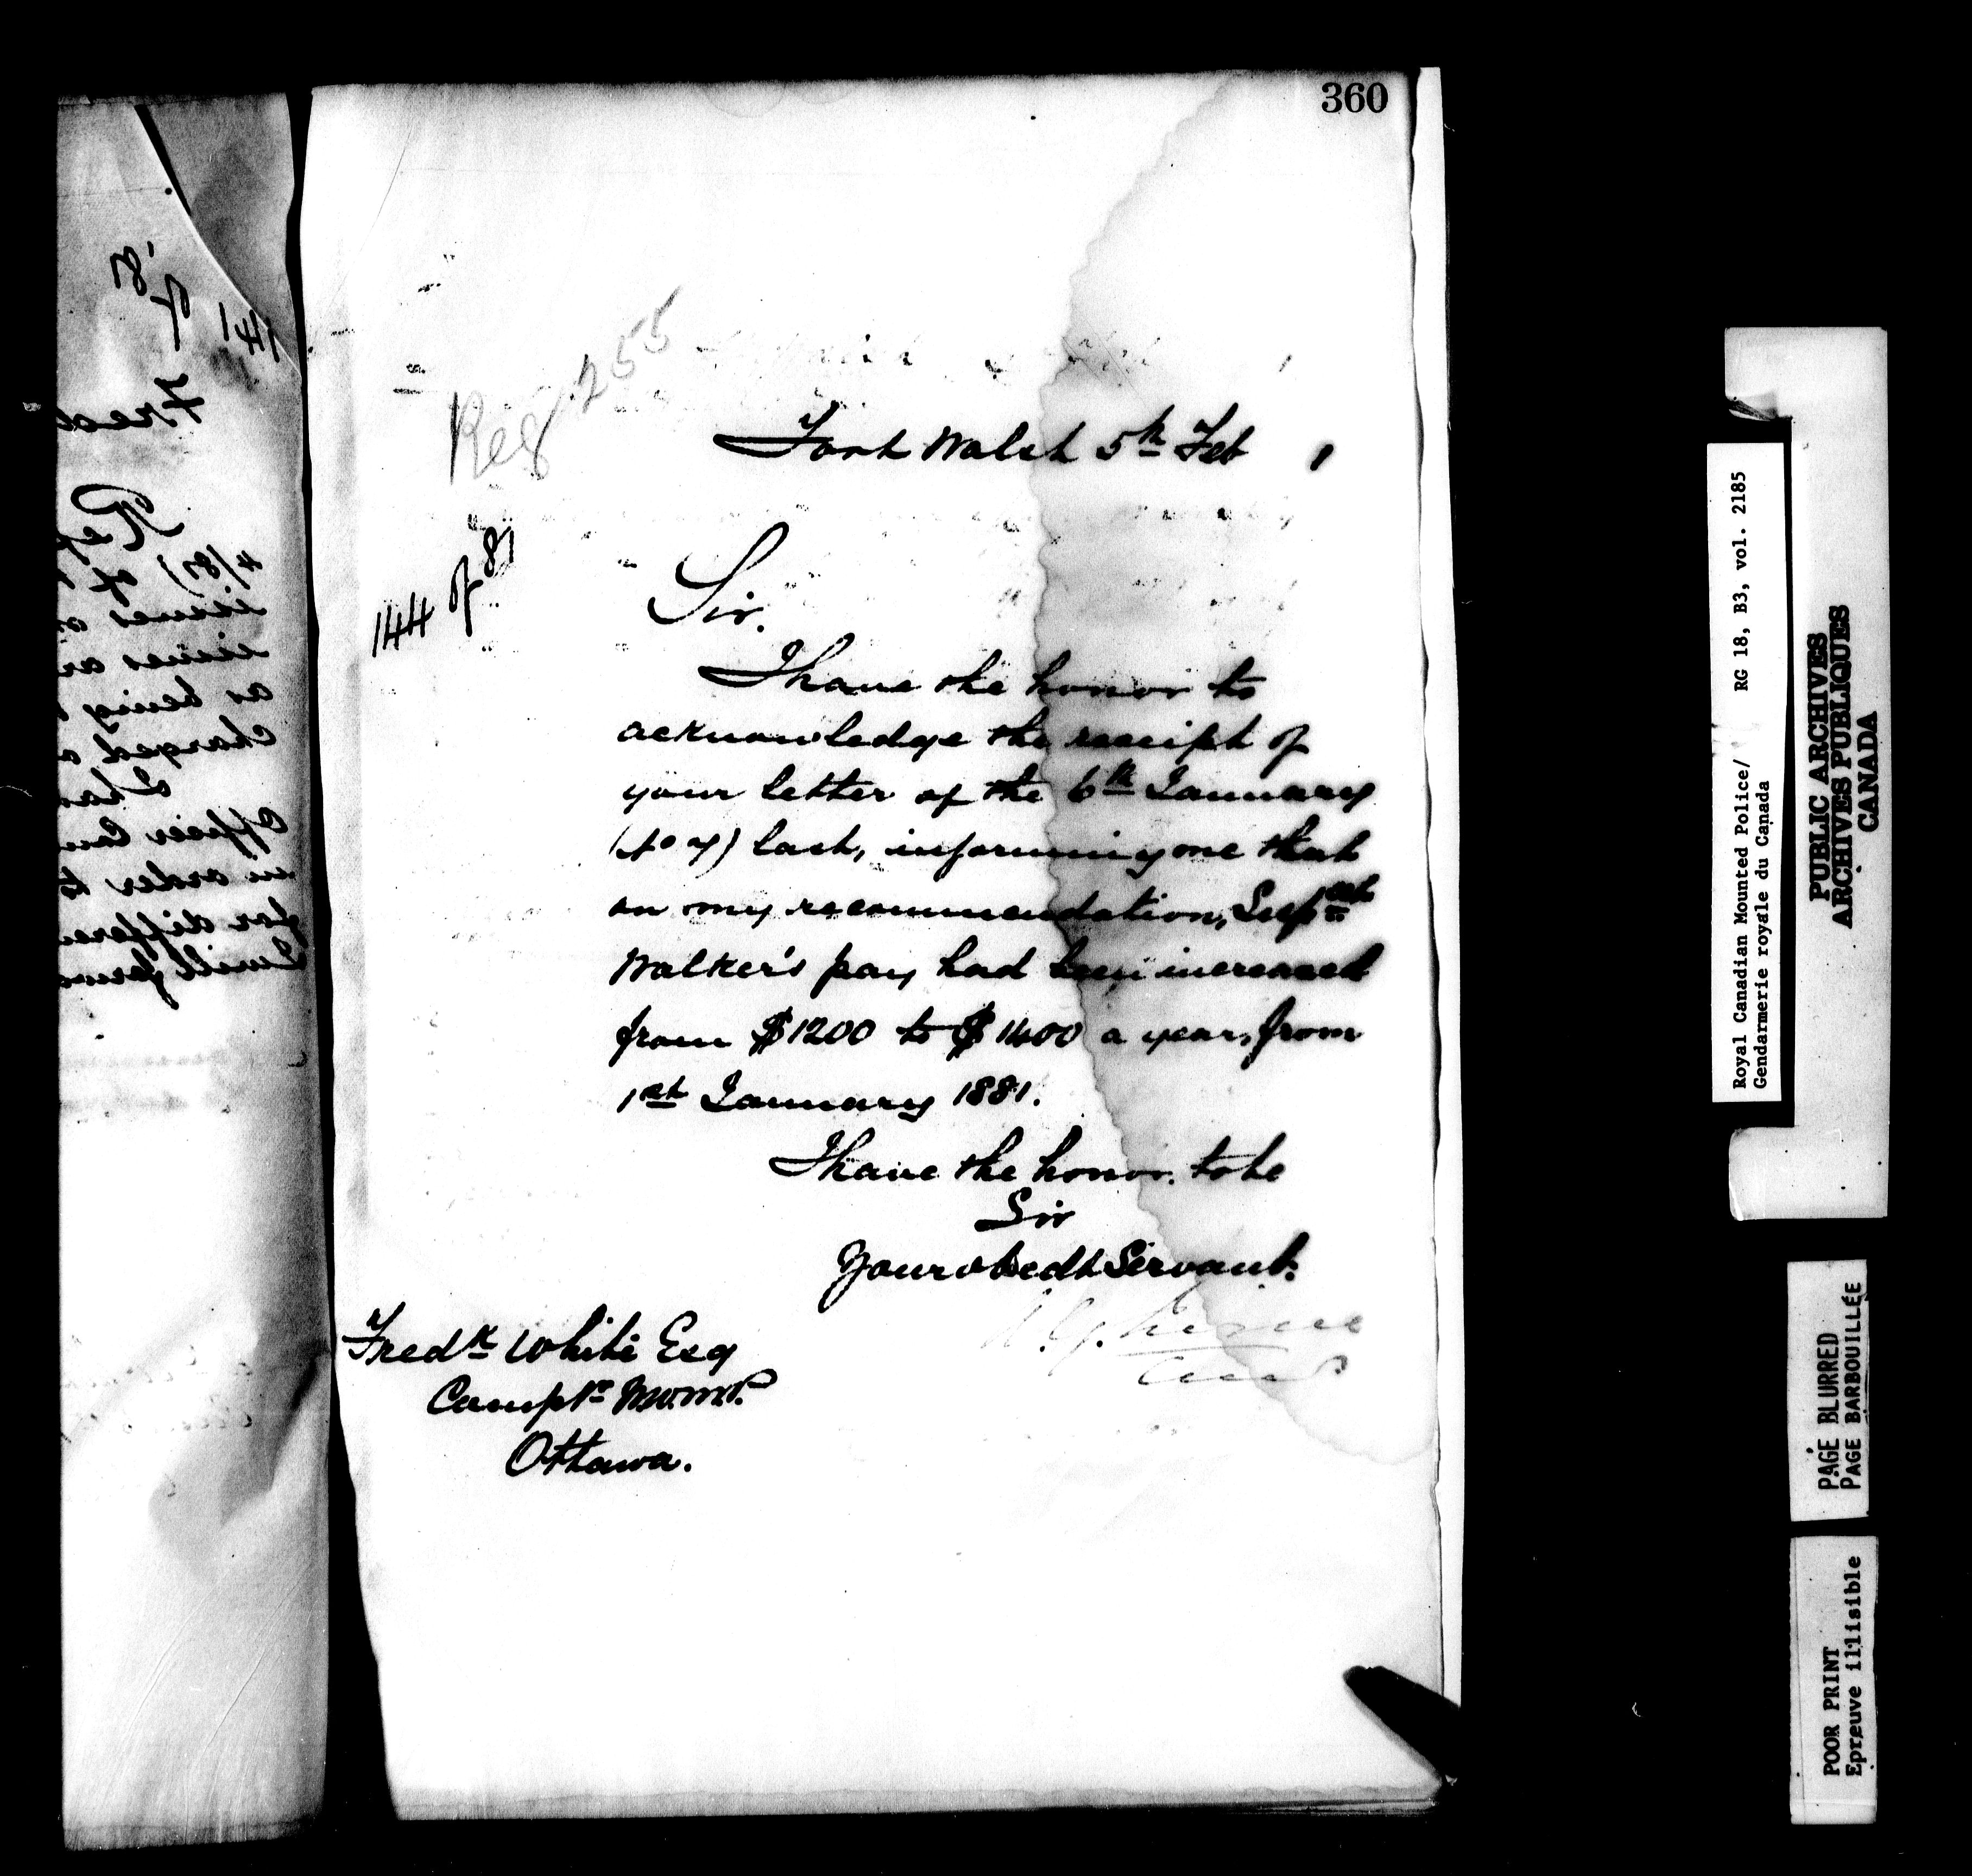 360
Reg. 255
Fort Walsh 5th Feb 1
144 of 81
Sir.
I have the honor to
acknowledge the receipt of
your letter of the 6th January
(No 7) last, informing me that
on my recommendation, Supt
Walker's pay had been increased
from $1200 to $1400 a year, from
1st January 1881.
I have the honor to be
Sir
Your obedt Servant.
A. G. Irvine
Fredk White Esq
Comptr N.W.M.P.
Ottawa.
141
of
81
Fred
4/81) of
as being
charged
Officer Com
in order to
for differen
I will forwa
Royal Canadian Mounted Police/ RG 18, B3, vol. 2185
Gendarmerie royale du Canada
PUBLIC ARCHIVES
ARCHIVES PUBLIQUES
CANADA
PAGE BLURRED
PAGE BARBOUILLÉE
POOR PRINT
Epreuve illisible